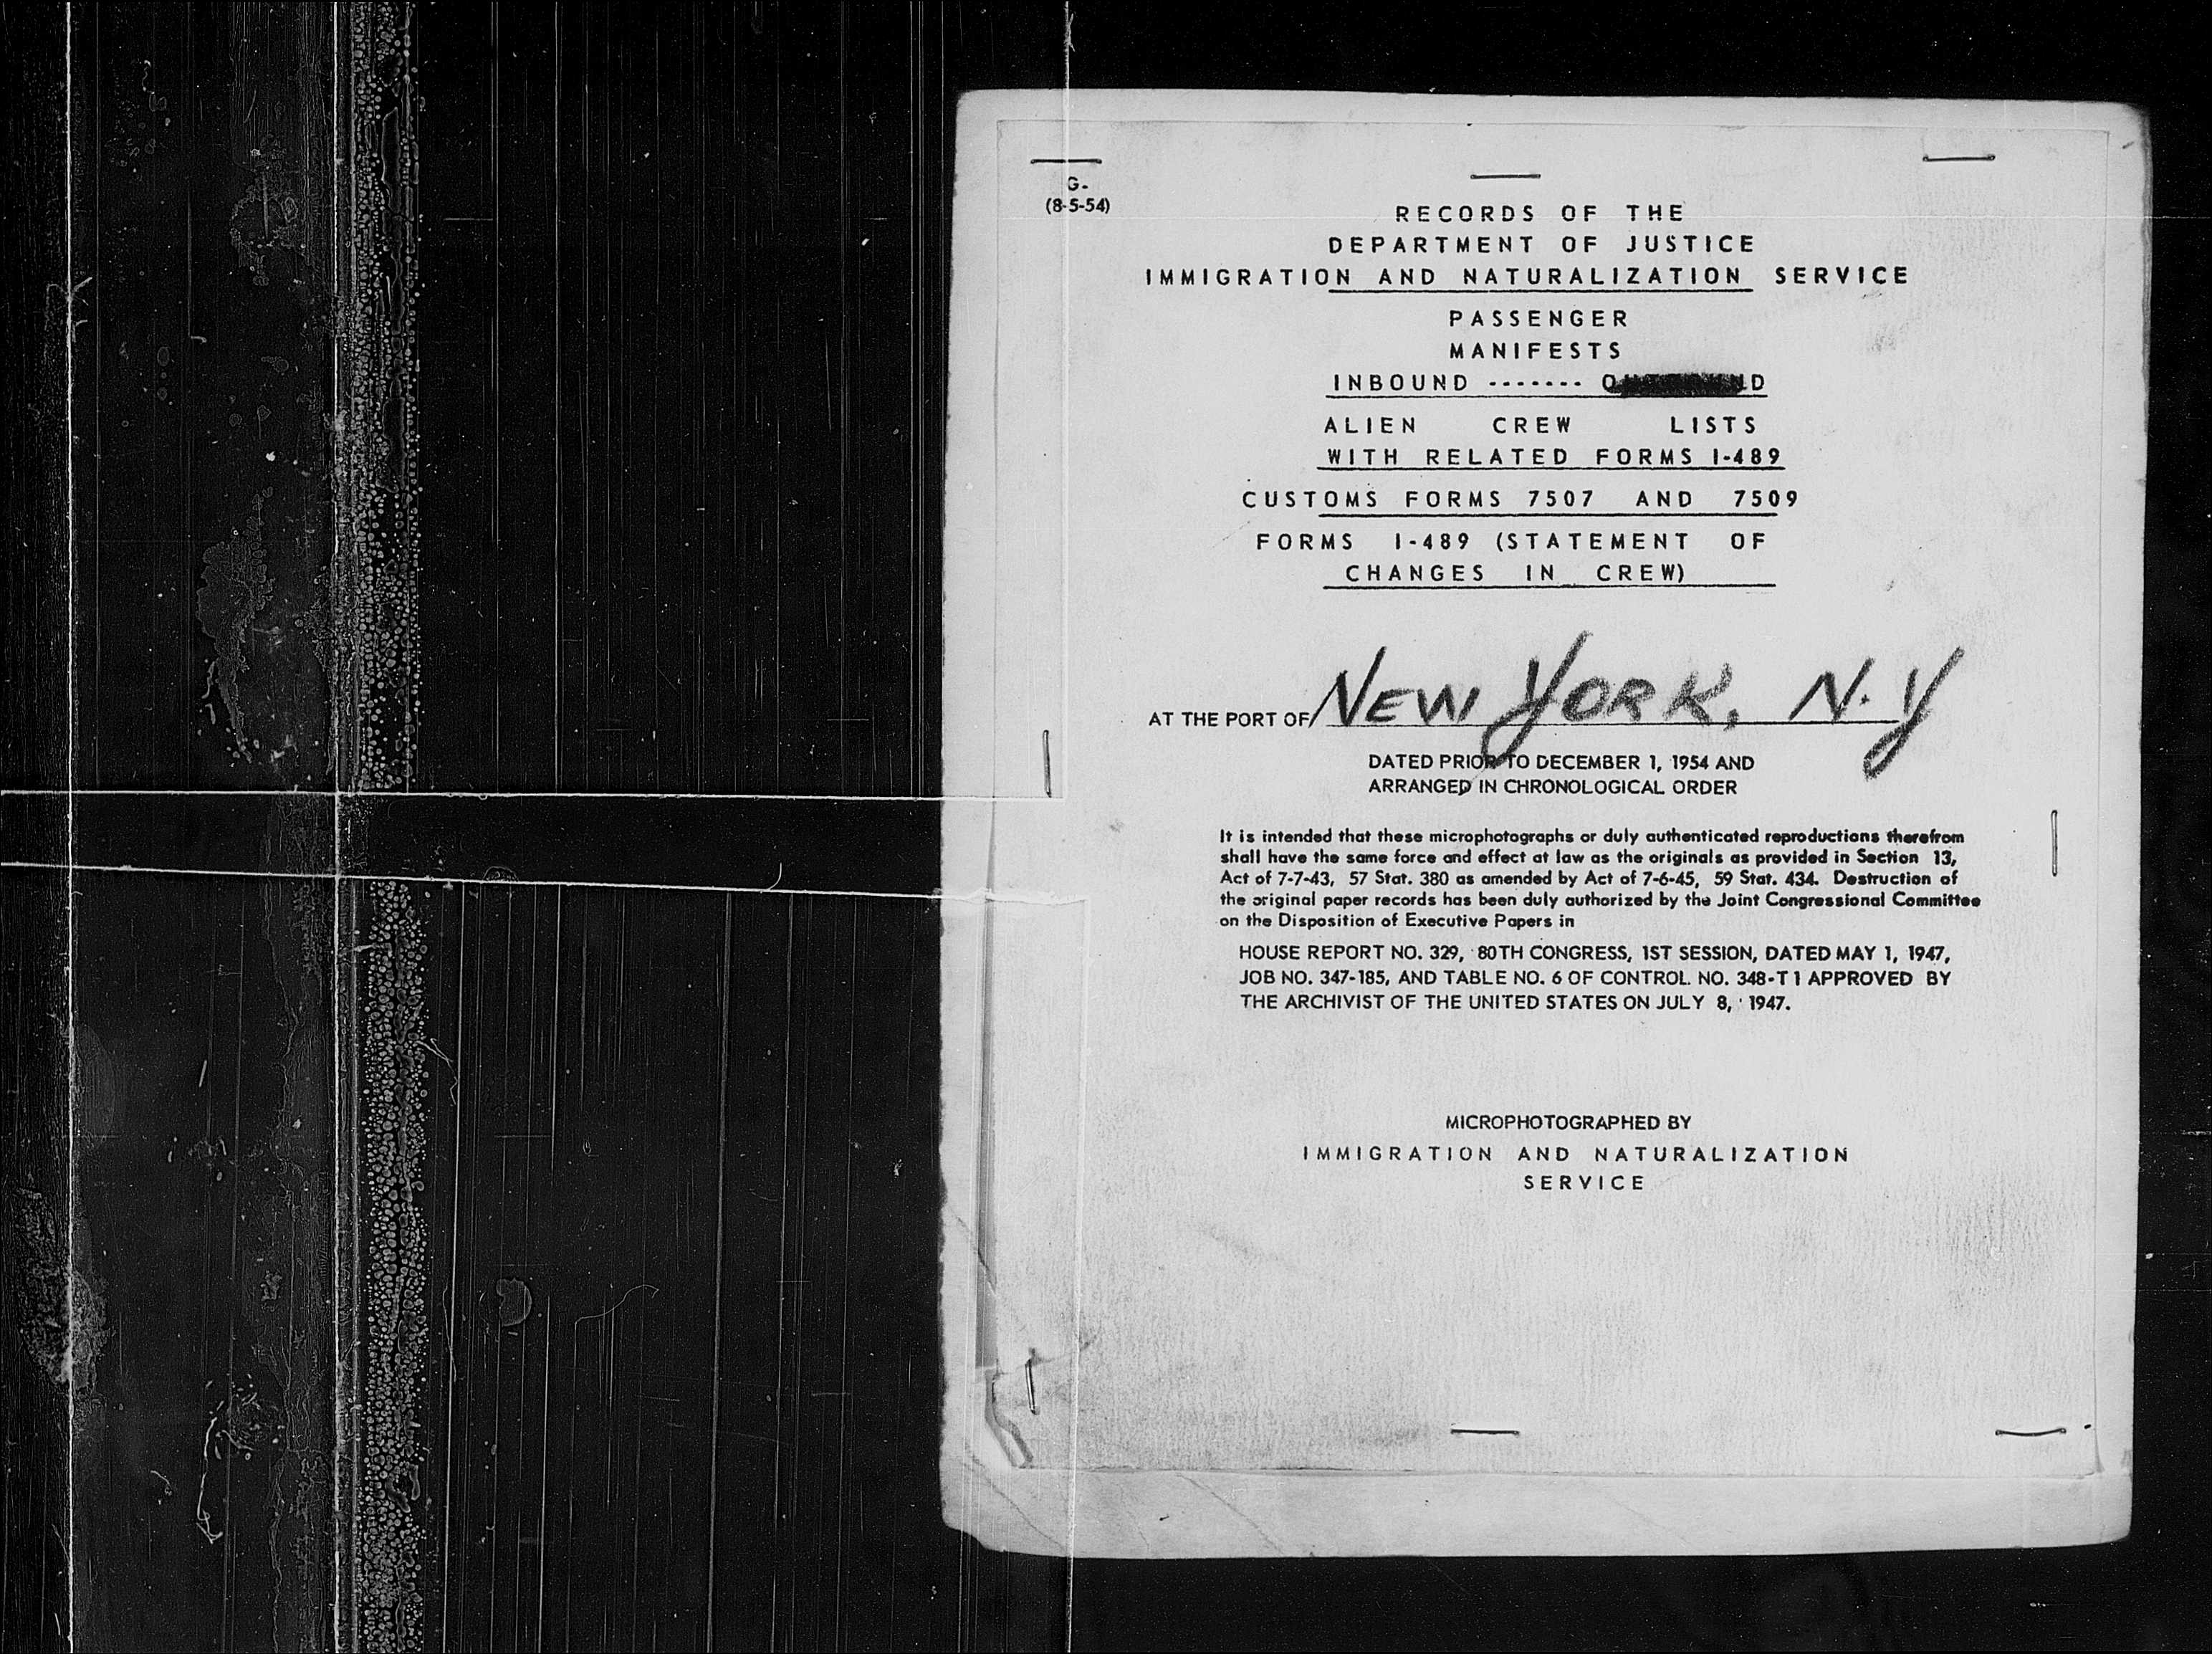 G-
(8-5-54)
RECORDS OF THE
DEPARTMENT OF JUSTICE
IMMIGRATION AND NATURALIZATION SERVICE
PASSENGER
MANIFESTS
INBOUND -------
ALIEN CREW LISTS
WITH RELATED FORMS I-489
CUSTOMS FORMS 7507 AND 7509
FORMS I-489 (STATEMENT OF
CHANGES IN CREW)
AT THE PORT OF NEW YORK, N.Y
DATED PRIOR TO DECEMBER 1, 1954 AND
ARRANGED IN CHRONOLOGICAL ORDER
It is intended that these microphotographs or duly authenticated reproductions therefrom
shall have the same force and effect at law as the originals as provided in Section 13,
Act of 7-7-43, 57 Stat. 380 as amended by Act of 7-6-45, 59 Stat. 434. Destruction of
the original paper records has been duly authorized by the Joint Congressional Committee
on the Disposition of Executive Papers in
HOUSE REPORT NO. 329, 80TH CONGRESS, 1ST SESSION, DATED MAY 1, 1947,
JOB NO. 347-185, AND TABLE NO. 6 OF CONTROL NO. 348-T1 APPROVED BY
THE ARCHIVIST OF THE UNITED STATES ON JULY 8, 1947.
MICROPHOTOGRAPHED BY
IMMIGRATION AND NATURALIZATION
SERVICE